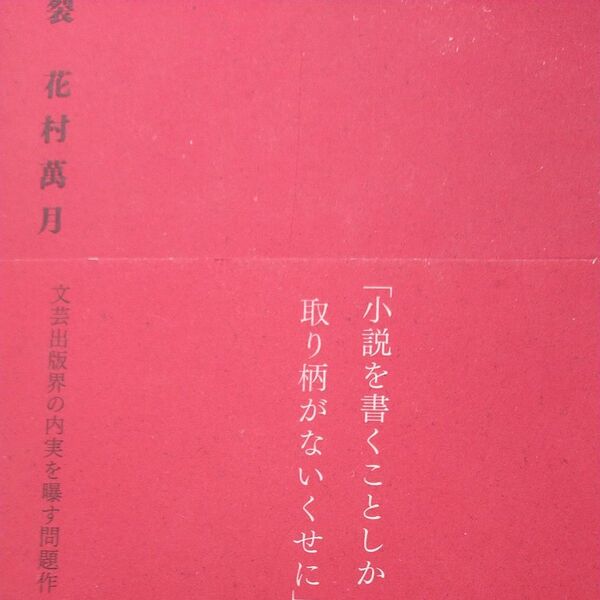 「小説を書くことしか
取り柄がないくせに」
裂 花村萬月
文芸出版界の内実を曝す問題作